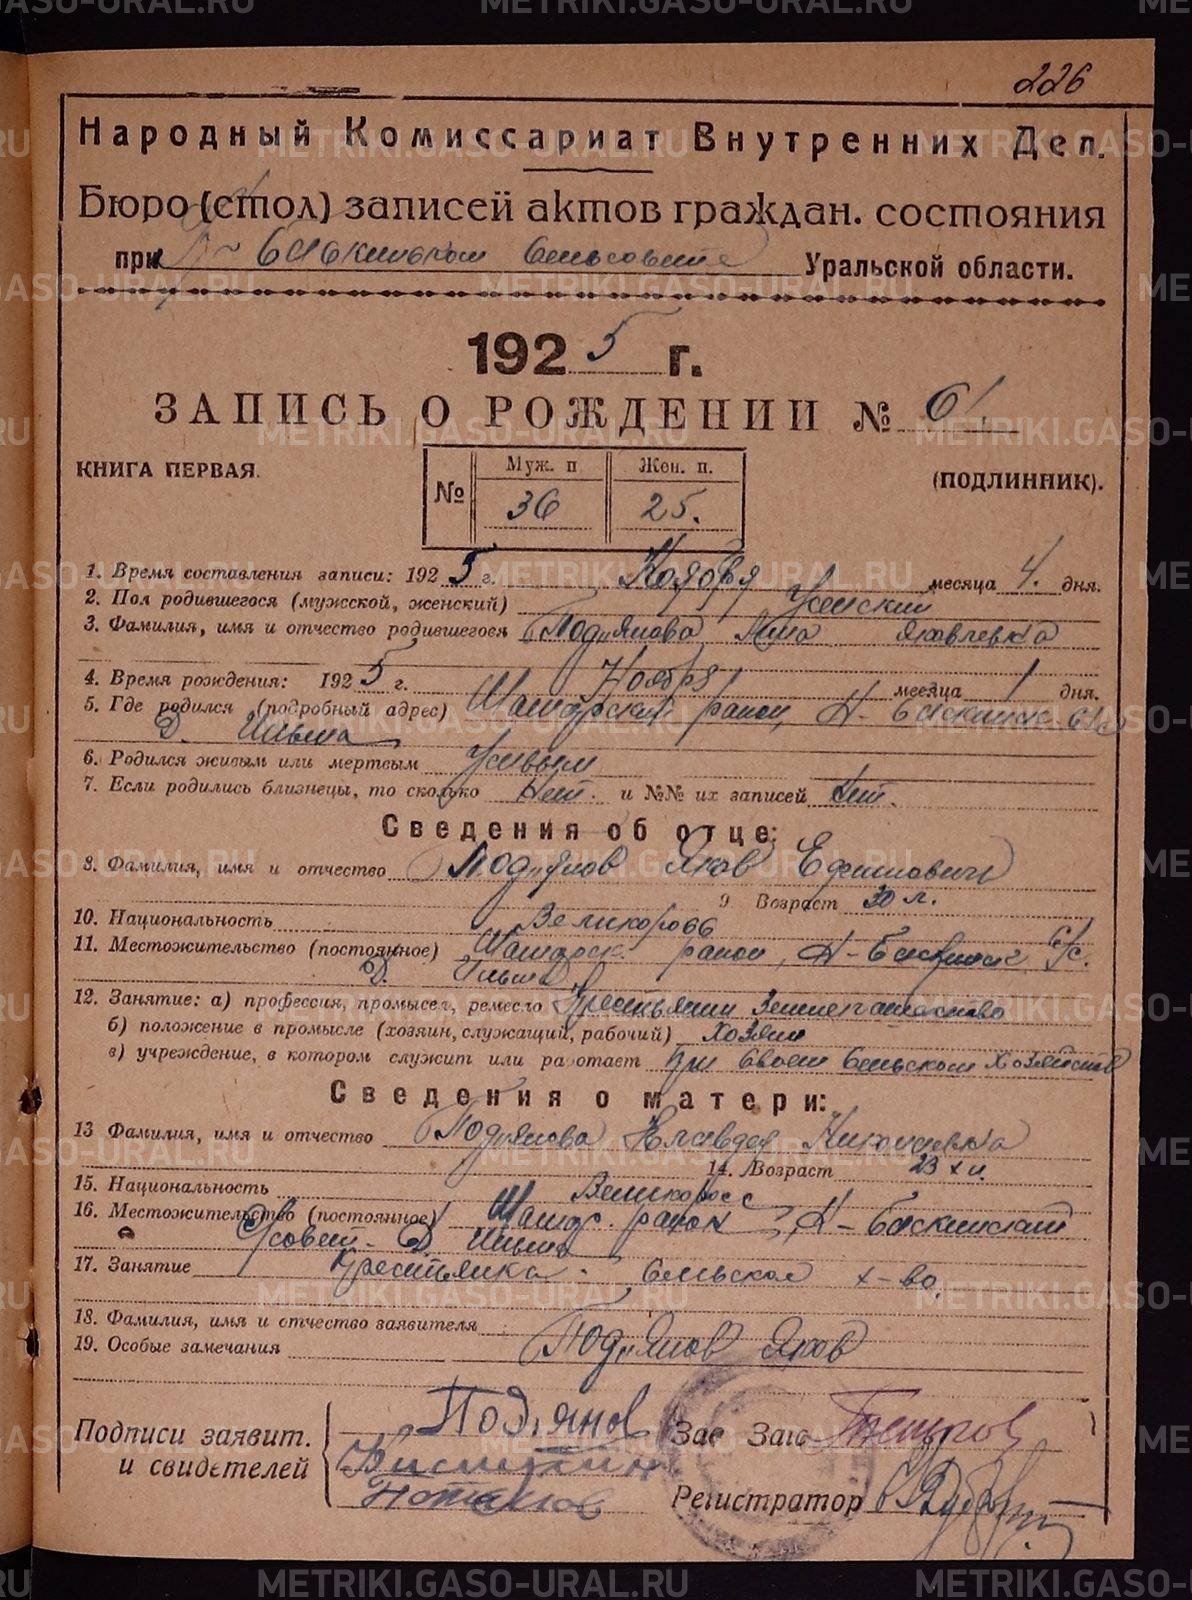 226
Народный Комиссариат Внутренних Дел.
Бюро (стол) записей актов граждан. состояния
при Н-Баскинском сельсовете Уральской области.
1925 г.
ЗАПИСЬ О РОЖДЕНИИ № 61.
КНИГА ПЕРВАЯ. № Муж. п 36 Жен. п. 25. (ПОДЛИННИК).
1. Время составления записи: 1925 г. Ноября месяца 4. дня.
2. Пол родившегося (мужской, женский) Женский
3. Фамилия, имя и отчество родившегося Подъянова Яковлевна
4. Время рождения: 1925 г. Ноября месяца 1 дня.
5. Где родился (подробный адрес) район, Н-Баскинск
Д. Ильма
6. Родился живым или мертвым Живым
7. Если родились близнецы, то сколько нет. и №№ их записей нет.
Сведения об отце:
8. Фамилия, имя и отчество Подъянов Яков Ефимович
9 Возраст 30 л.
10. Национальность Великоросс
11. Местожительство (постоянное) район, Н-Баскинск С/с.
Д. Ильма
12. Занятие: а) профессия, промысел, ремесло Крестьянин
б) положение в промысле (хозяин, служащий, рабочий) хозяин
в) учреждение, в котором служит или работает при своем сельском хозяйстве
Сведения о матери:
13 Фамилия, имя и отчество Подъянова Клавдея
14. Возраст 23
15. Национальность Великоросс
16. Местожительство (постоянное) район, Н-Баскинский
Д. Ильма
17. Занятие Крестьянка - сельское х-во.
18. Фамилия, имя и отчество заявителя
19. Особые замечания Подъянов Яков
Подписи заявит. и свидетелей
Подъянов
Зав Загс
Регистратор
METRIKI.GASO-URAL.RU